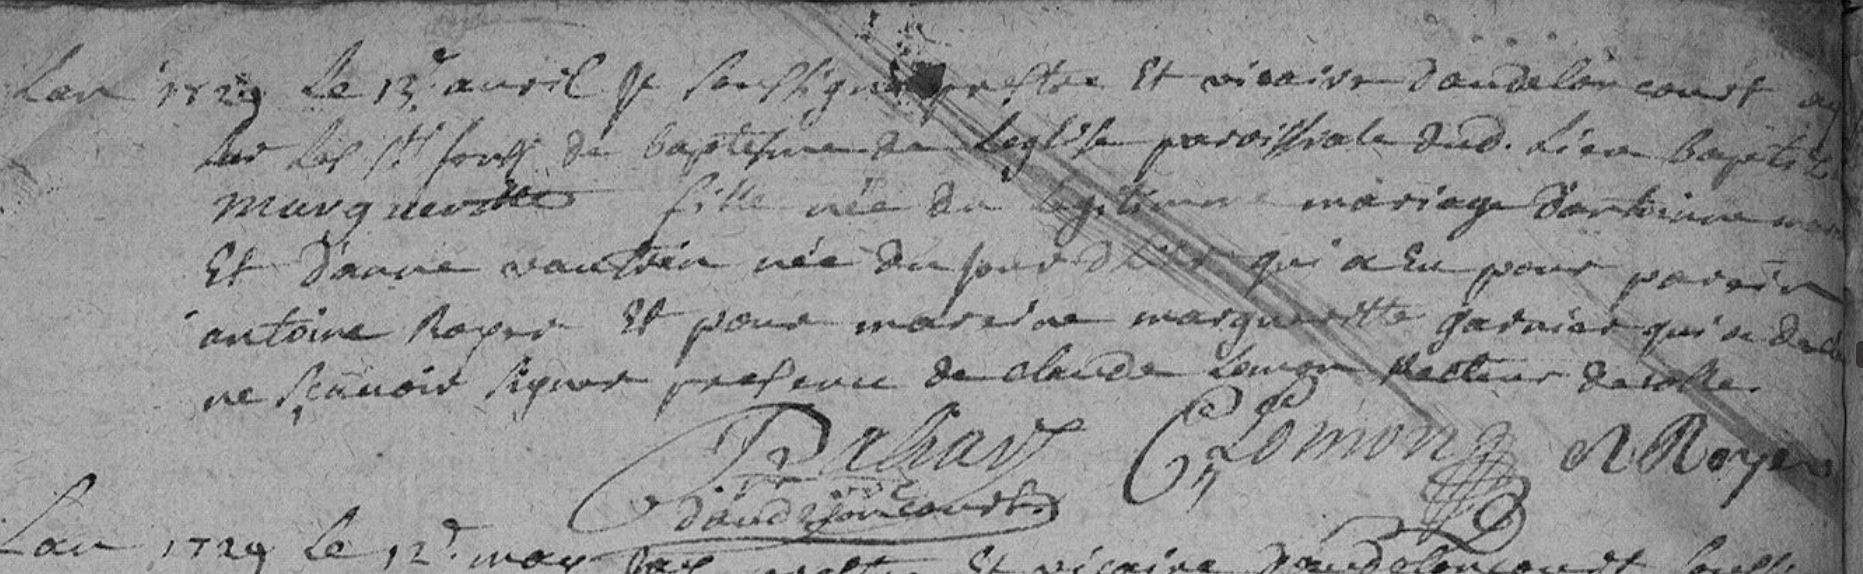 Lan 1729 Le 13e. avril Je soussigné prestre Et vicaire daudeloncourt ay
sur Les sts fonts de baptesme de Leglise paroissiale dud. Lieu baptisé
marguerite fille née du legitimme mariage dantoinne
Et danne vautrin née du jour dhier qui a Eu pour parein
antoine Royer Et pour mareine margueritte garnier qui a
ne scauoir signer presence de claude Lomon Recteur
C Lomon A Royer
daudeloncourt.
Lan 1729 Le 12e. may prestre Et vicaire daudeloncourt